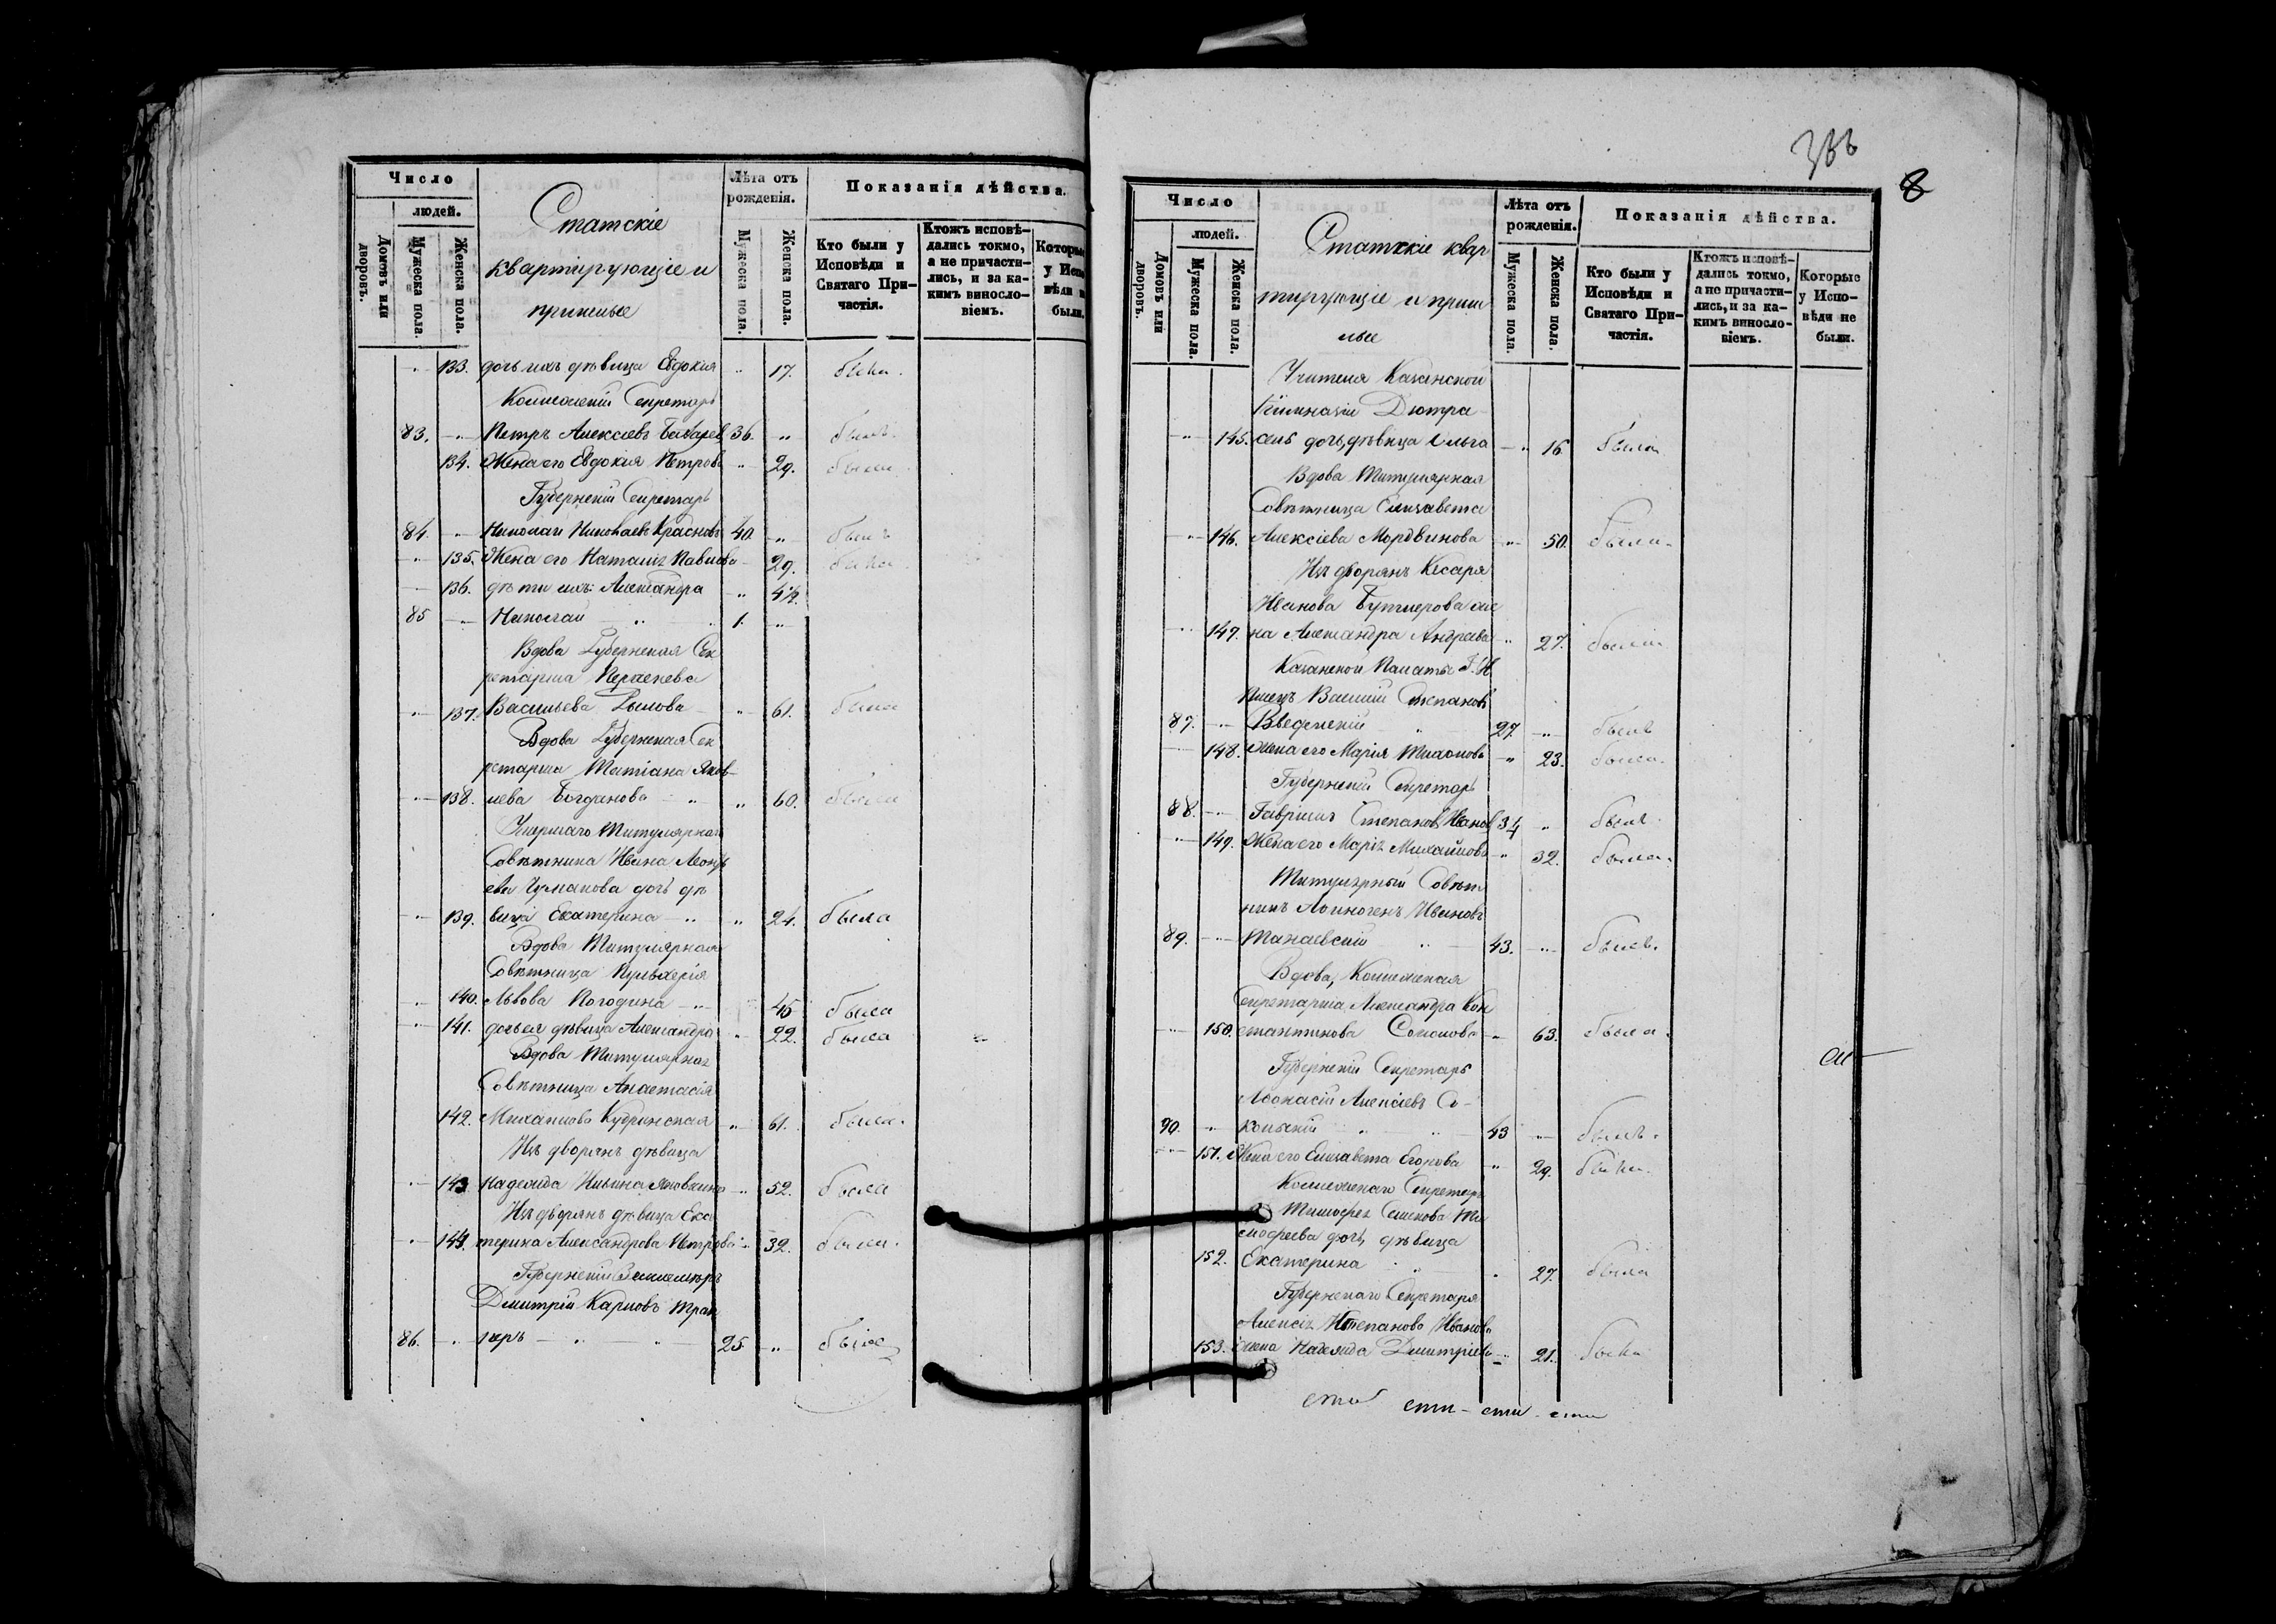 Число
людей.
Домовъ или дворовъ.
Мужеска пола.
Женска пола.
Статскіе
квартирующіе и
пришлые
Лѣта отъ рожденія.
Мужеска пола.
Женска пола.
Показанія дѣйства.
Кто были у Исповѣди и Святаго Причастія.
Ктожъ исповѣдались токмо, а не причастились, и за какимъ винословіемъ.
Которые у Испо вѣди н были.
133. дочь ихъ дѣвица Евдокия 17. была.
Коллежскій Секретарь
83. Петръ Алексѣевъ 36. былъ.
134. Жена его Евдокия Петрова 29. была.
Губернскій Секретарь
84. Николай Николаевъ Красновъ 40. былъ
135. Жена его Наталія Павлова 29. была.
136. дѣти ихъ: Александра 4½.
85 Николай 1.
Вдова Губернская Сек
ретарша
137. Васильева Рылова 61. была
Вдова Губернская Сек
ретарша Татіана Яков-
138. лева Богданова 60. была
Умершаго Титулярнаго
Совѣтника Ивана Леонть
ева Чумакова дочь дѣ
139. вица Екатерина 24. была
Вдова Титулярная
Совѣтница Пульхерія
140. Львова Погодина 45 была
141. дочь ея дѣвица Александра 22. была
Вдова Титулярная
Совѣтница Анастасія
142. Михайлова Кудринская 61. была.
Изъ дворянъ дѣвица
143 Надежда Ильина 52. была
Изъ дворянъ дѣвица Ека
144. терина Александрова Петрова 32. была.
Губернскій Землемѣръ
Дмитрій Карловъ Тран
86. 25. былъ
366
8
Число
людей.
Домовъ или дворовъ.
Мужеска пола.
Женска пола.
Статскіе квар
тирующіе и приш
лые
Лѣта отъ рожденія.
Мужеска пола.
Женска пола.
Показанія дѣйства.
Кто были у Исповѣди и Святаго Причастія.
Ктожъ исповѣдались токмо, а не причастились, и за какимъ винословіемъ.
Которые у Исповѣди не были.
Учителя Казанской
Гимназіи Дютра-
145. сель дочь, дѣвица Ольга 16 была
Вдова Титулярная
Совѣтница Елизавета
146. Алексіева Мордвинова 50. была.
Изъ дворянъ Кесаря
Иванова Бутлерова же
147. на Александра Андреева 27. была
Казанской Палаты Г. И.
Писецъ Василій Степановъ
87. Введенскій 27. былъ
148. Жена его Марія Тихонова 23. была.
Губернскій Секретарь
88. Гавріилъ Степановъ Ивановъ 34 былъ
149. Жена его Марія Михайлова 32. была.
Титулярный Совѣт
никъ Аѳиногенъ Ивановъ
89. Танаевскій 43. былъ.
Вдова, Коллежская
Секретарша Александра Кон
150. стантинова Соколова 63. была.
Губернскій Секретарь
Аѳанасій Алексіевъ Со-
90. кольскій 43 былъ.
151. Жена его Елизавета Егорова 29. была.
Коллежскаго Секретаря
Тимоѳея Семенова Ти
моѳеева дочь, дѣвица
152. Екатерина 27. была
Губернскаго Секретаря
Алексія Степанова Иванова
153. жена Надежда Дмитріева 21. была